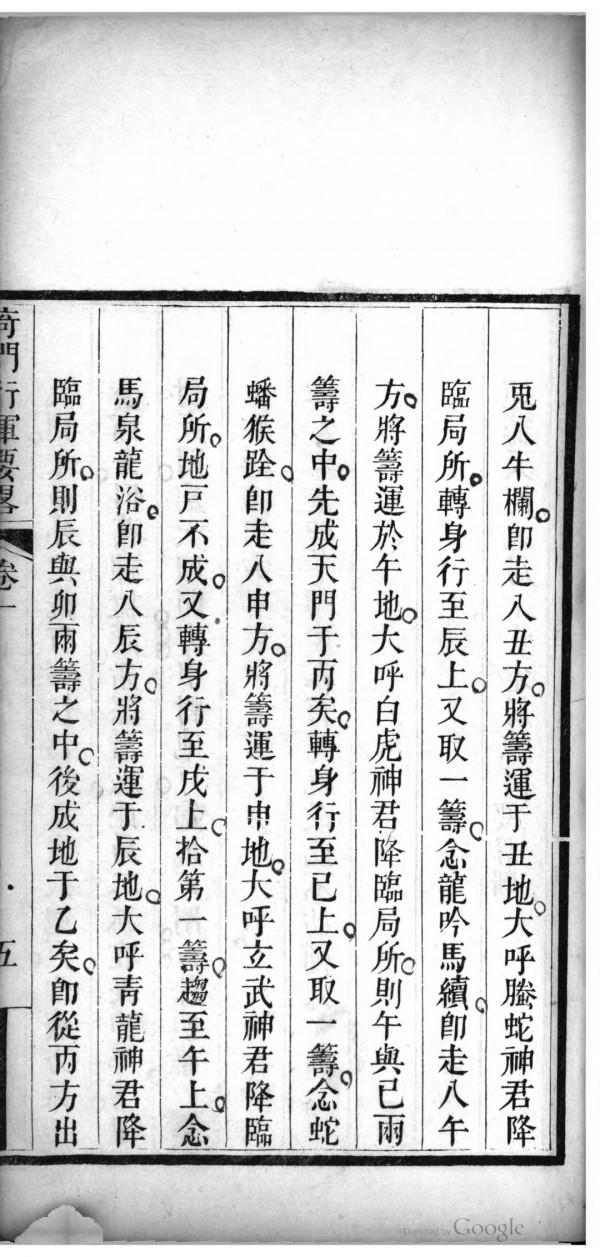 兎入牛欄。卽走入丑方。將籌運于丑地。大呼螣蛇神君降
臨局所。轉身行至辰上。又取一籌。念龍吟馬續。卽走入午
方。將籌運於午地。大呼白虎神君降臨局所。則午與巳兩
籌之中。先成天門于丙矣。轉身行至巳上。又取一籌。念蛇
蟠猴跧。卽走入申方。將籌運于申地。大呼立武神君降臨
局所。地戸不成。又轉身行至戌上。拾第一籌。趨至午上。念
馬泉龍浴。卽走入辰方。將籌運于辰地。大呼青龍神君降
臨局所。則辰與卯兩籌之中。後成地于乙矣。卽從丙方出
奇門行軍要畧
卷一
五
Digitized by Google